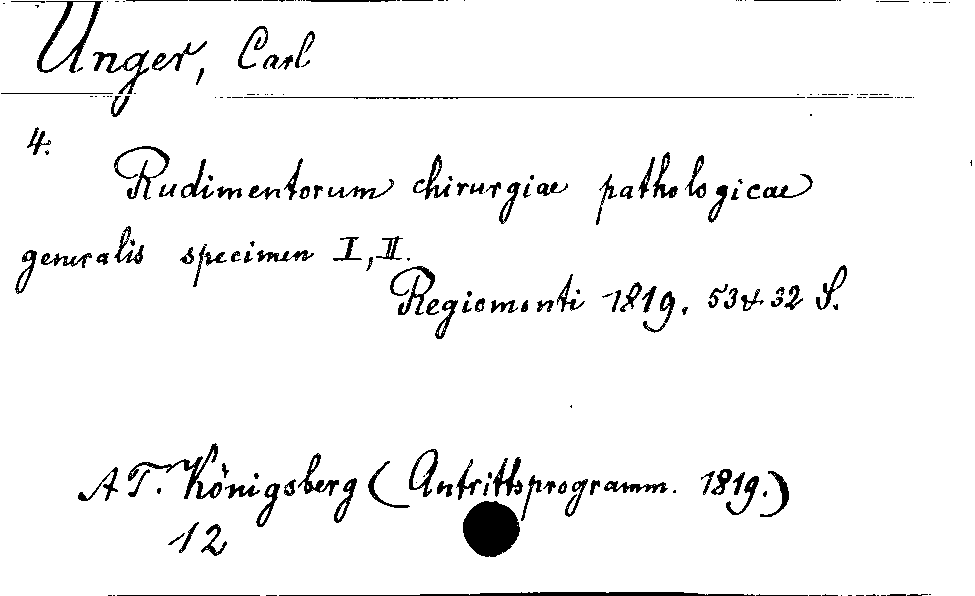 Unger, Carl
4:
Rudimentorum chirurgiae pathologicae
generalis specimen I, II.
Regiomonti 1819. 53 & 32 S.
AT. Königsberg (Antrittsprogramm. 1819.)
12